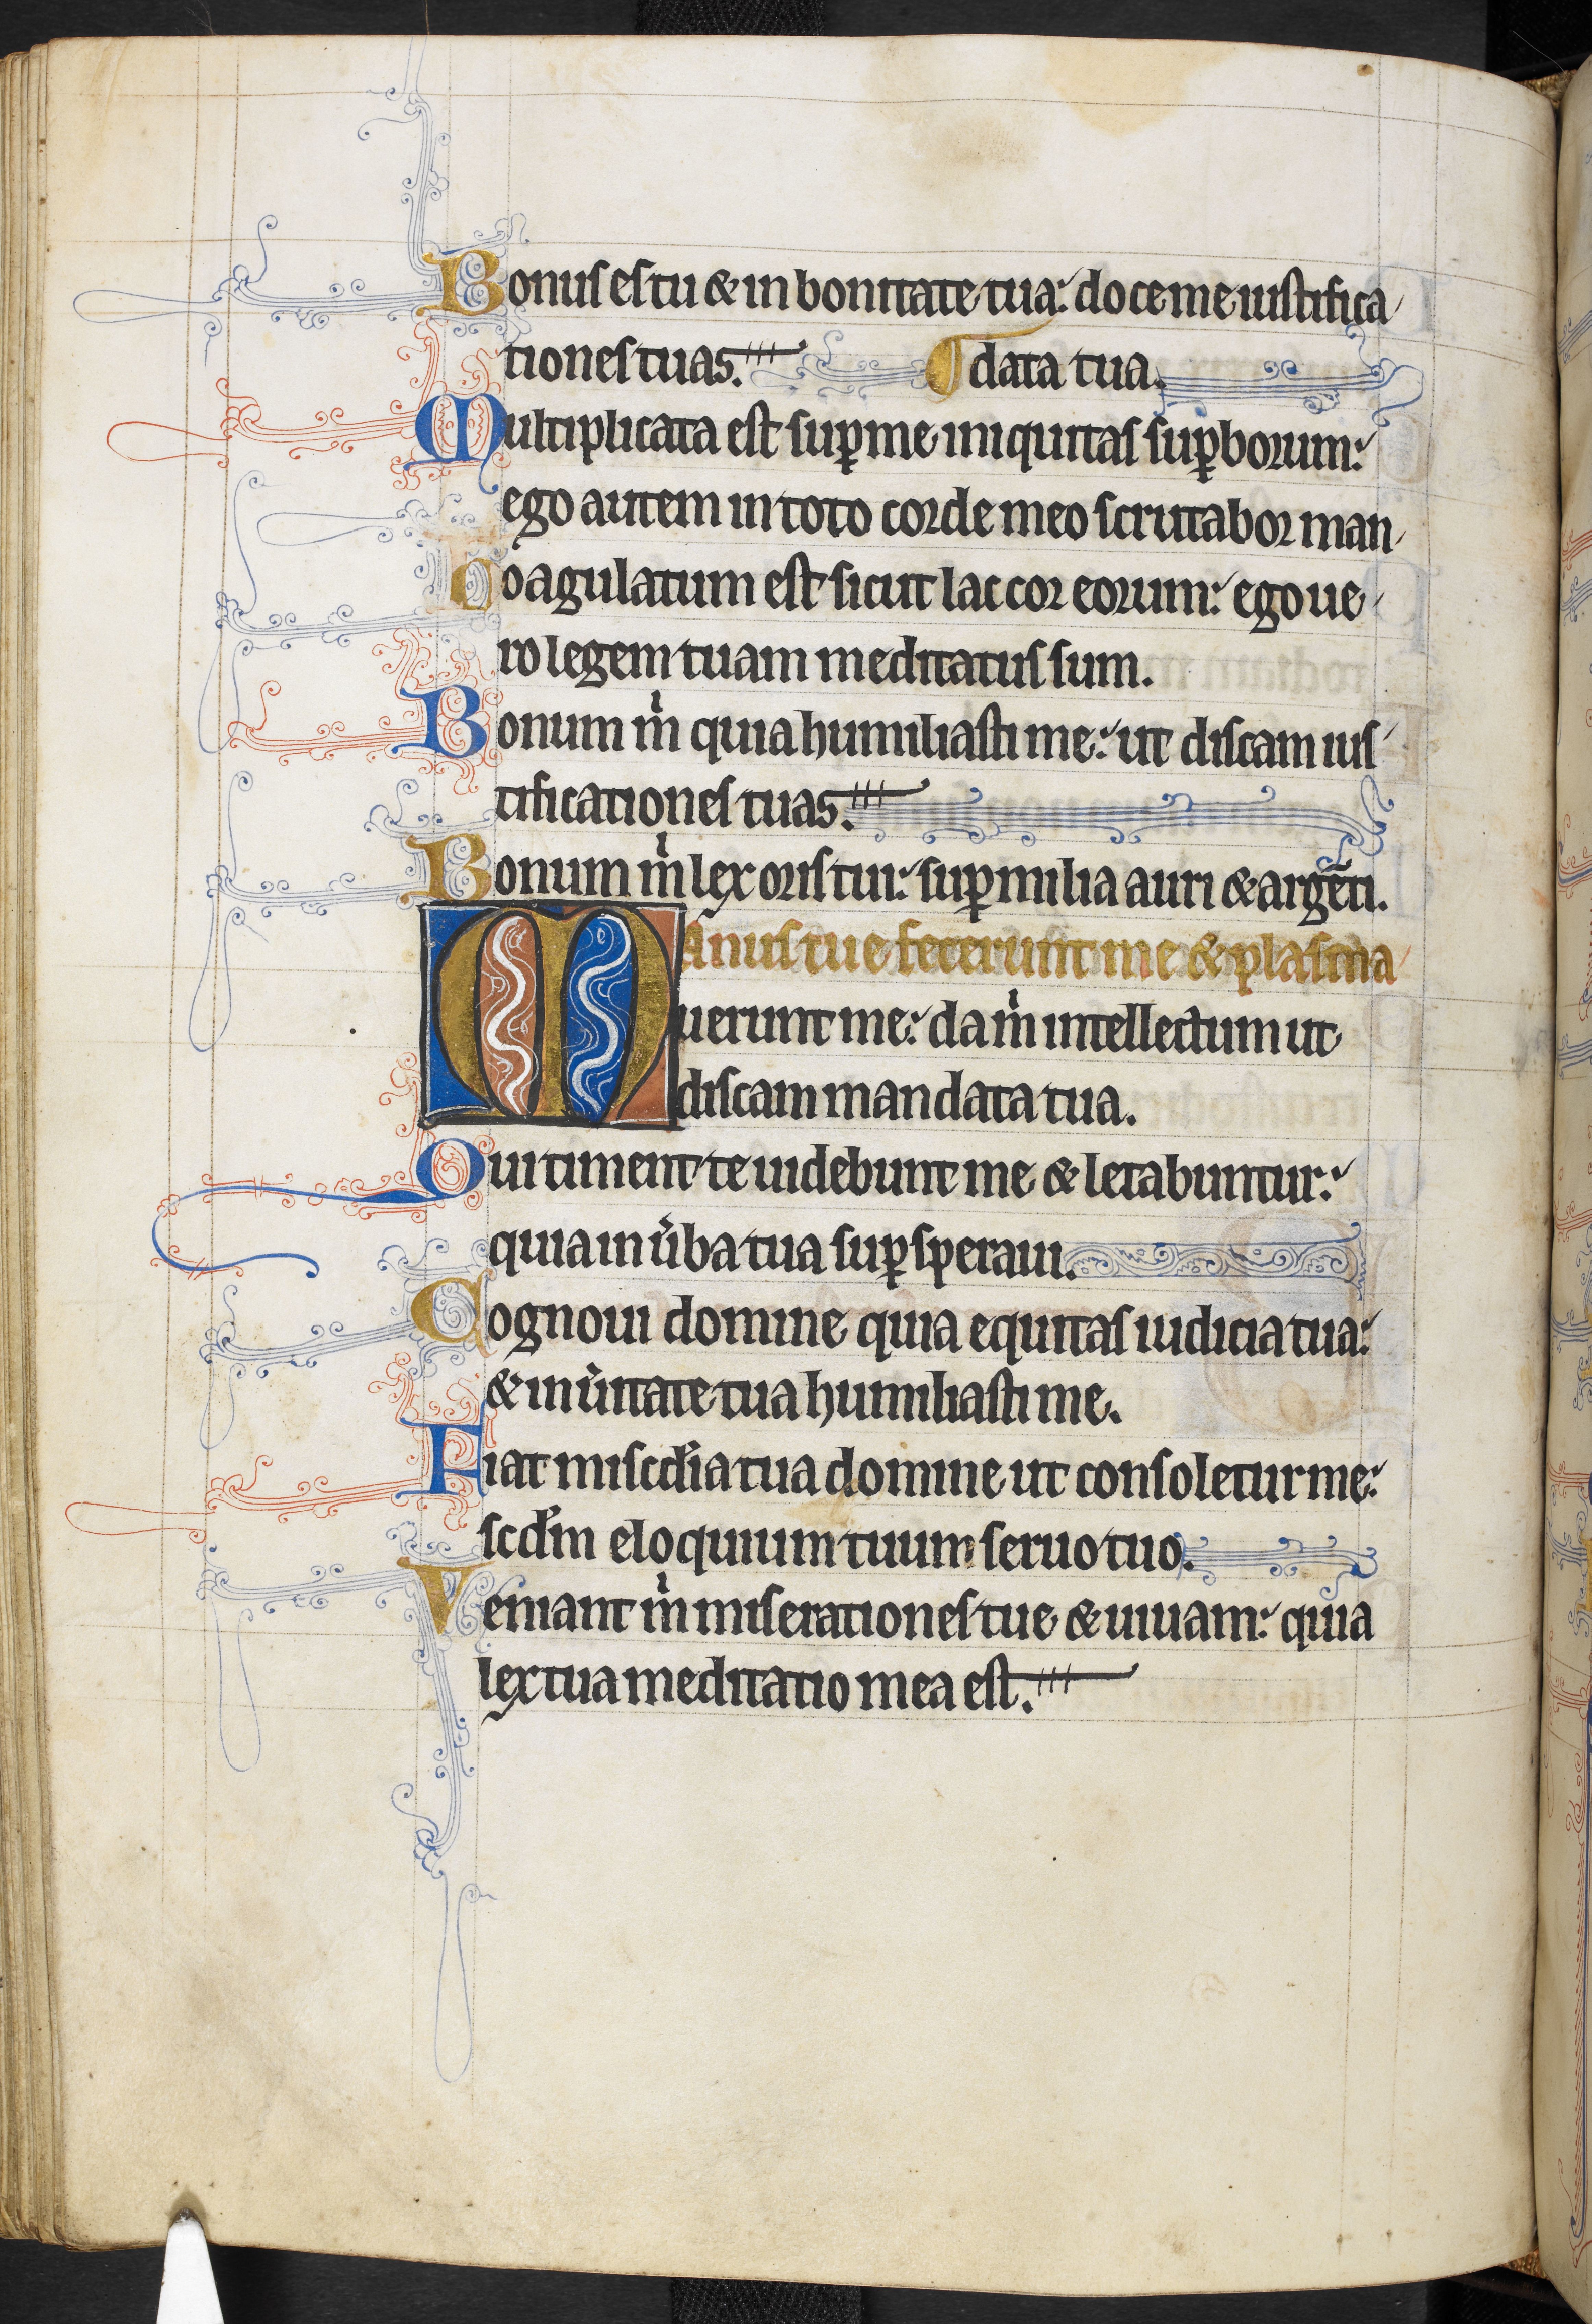 Bonus es tu & in bonitate tua: doce me iustifica
tiones tuas. ¶ data tua.
Multiplicata est sup̱ me iniquitas sup̱borum:
ego autem in toto corde meo scrutabor man
Coagulatum est sicut lac cor eorum: ego ue
ro legem tuam meditatus sum.
Bonum m̍ quia humiliasti me: ut discam ius
tificationes tuas.
Bonum m̍ lex oris tui: sup̱ milia auri & argēti.
Manus tue fecerunt me & plasma
uerunt me: da m̍ intellectum ut
discam mandata tua.
Qui timent te uidebunt me & letabuntur:
quia in u̍ba tua sup̱speraui.
Cognoui domine quia equitas iudicia tua:
& in u̍itate tua humiliasti me.
Fiat misc̍dia tua domine ut consoletur me:
scd̍m eloquium tuum seruo tuo.
Veniant m̍ miserationes tue & uiuam: quia
lex tua meditatio mea est.